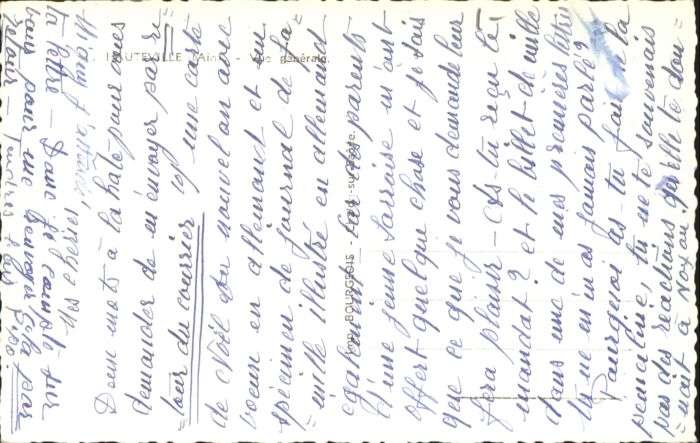 HAUTEVILLE (Ain) - Vue générale.
Imp. BOURGEOIS - 
Mes chéris,
Deux mots à la hâte pour vous
demander de m'envoyer par re
= tour du courrier 1º) une carte
de Noël ou nouvel an avec
voeux en allemand et un
spécimen de journal de fa
= mille illustré en allemand
également. Les parents
d'une jeune sarroise m'ont
offert quelque chose et je sais
que ce que je vous demande leur
fera plaisir - As-tu reçu le
mandat? et le billet de mille
dans une de mes premières lettres
tu ne m'en as jamais parlé?
Pourquoi as-tu fait la
pénicilline, tu ne te souvenais
pas des réactions qu'elle don
= nait à Yoyou?